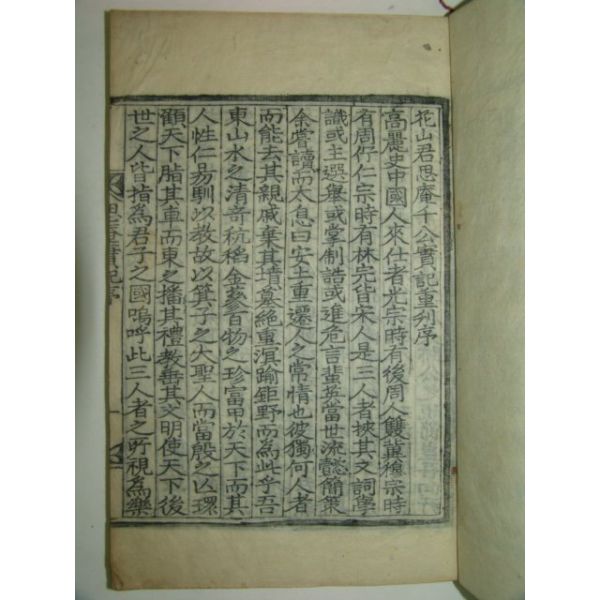 花山君思庵千公實記重刋序
高麗史中國人來仕者光宗時有後周人雙冀穆宗時
有周佇仁宗時有林完皆宋人是三人者挾其文詞學
識或主選擧或掌制誥或進危言蜚英當世流懿簡策
余嘗讀而太息曰安土重遷人之常情也彼獨何人者
而能去其親戚棄其墳墓絶重溟踰鉅野而爲此乎吾
東山水之淸奇秔稻金蔘百物之珍富甲於天下而其
人性仁易馴以敎故以箕子之大聖人而當殷之以環
顧天下脂其車而東之播其禮敎善其文明使天下後
世之人皆指爲君子之國嗚呼此三人者之所視爲樂
思庵實記序